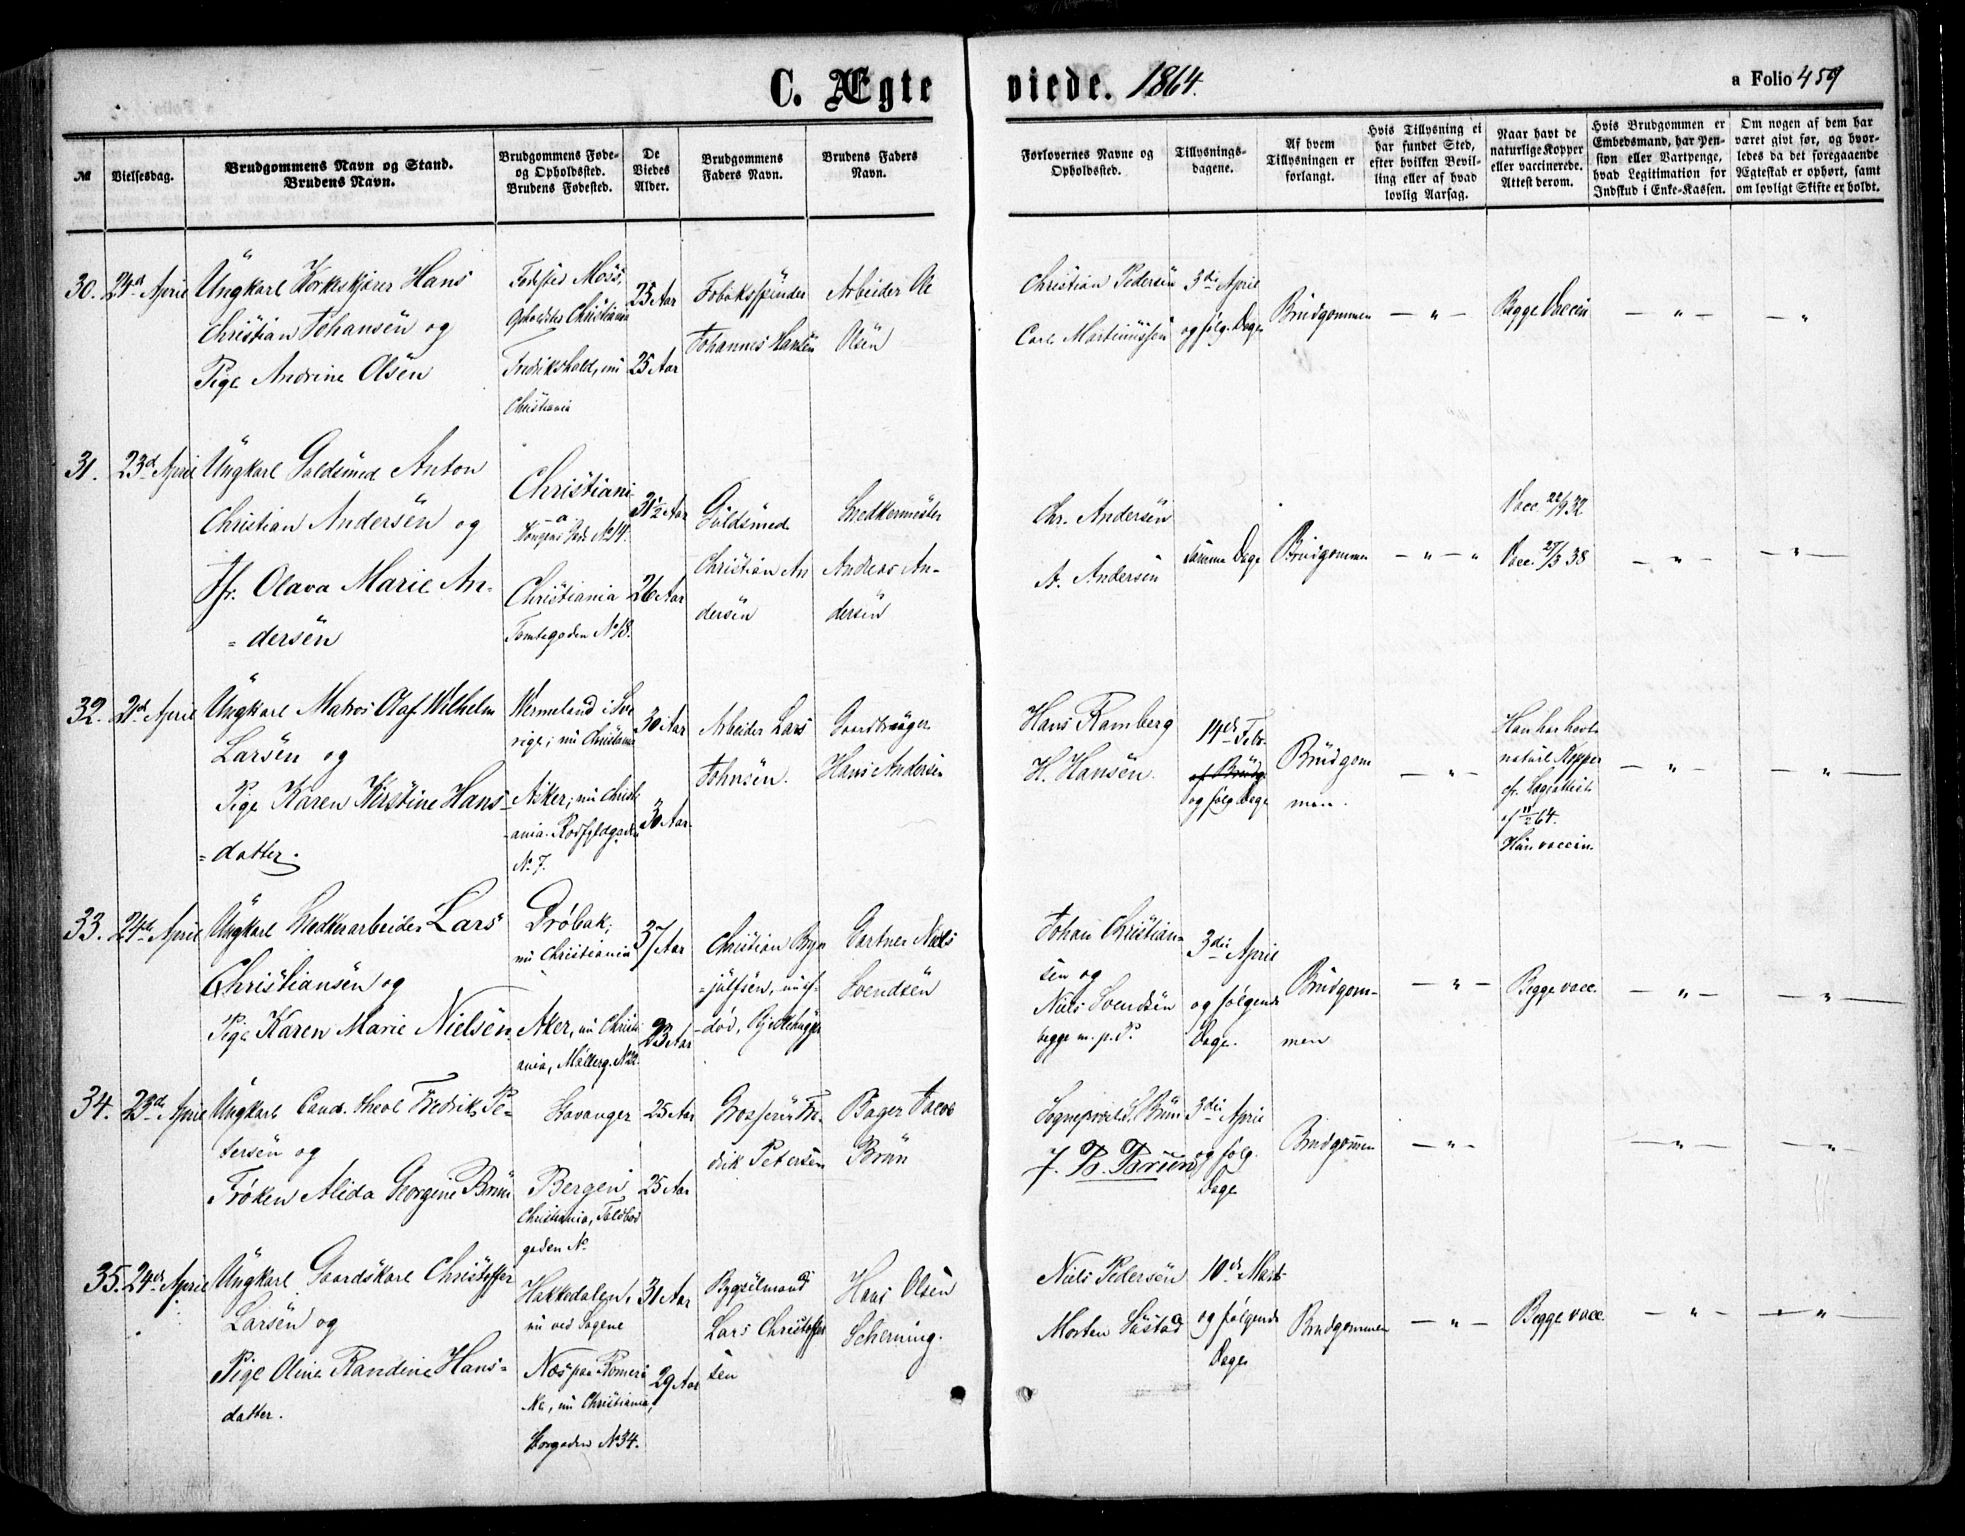 C. Ægte viede. 1864.
a Folio 459
№
Vielsesdag.
Brudgommens Navn og Stand.
Brudens Navn.
Brudgommens Føde-
og Opholdssted.
Brudens Fødested.
De
Viedes
Alder.
Brudgommens
Faders Navn.
Brudens Faders
Navn.
Forlovernes Navne og
Opholdssted.
Tillysnings-
dagene.
Af hvem
Tillysningen er
forlangt.
Hvis Tillysning ei
har fundet Sted,
efter hvilken Bevil-
ling eller af hvad
lovlig Aarsag.
Naar havt de
naturlige Kopper
eller vaccinerede.
Attest derom.
Hvis Brudgommen er
Embedsmand, har Pen-
sion eller Vartpenge,
hvad Legitimation for
Indskud i Enke-Kassen.
Om nogen af dem har
været givt før, og hvor-
ledes da det foregaaende
Ægteskab er ophørt, samt
om lovligt Skifte er holdt.
30.
24de April
Ungkarl Korkeskjærer Hans
Christian Johansen og
Pige Andrine Olsen
Fødested Moss,
Opholdster Christiania
Fredrikshald, nu
Christiania
25 Aar
25 Aar
Tobaksspinder
Johannes Hansen
Arbeider Ole
Olsen
Christian Pedersen
Carl Martinussen
3die April
og følg. Dage
Brudgommen
— " —
Begge Vaccin
— " —
— "
31.
23d April
Ungkarl Guldsmed Anton
Christian Andersen og
Jfr. Olava Marie An-
= dersen
Christiani
- a -
Kongens Gade No 14.
Christiania
Tomtegaden No 18.
31 1/2 Aar
26 Aar
Guldsmed
Christian An
dersen
Snedkermester
Andreas An-
dersen
Chr. Andersen
A. Andersen
samme Dage
Brudgommen
— " — "
Vacc. 22/9 32
Vacc. 27/3 38
— " —
— " —
32.
2d April
Ungkarl Matros Olaf Wilhelm
Larsen og
Pige Karen Kirstine Hans-
= datter.
Wermeland i Sve
rige; nu Christiania
Asker; nu Christi
-ania.
No 7.
30 Aar
30 Aar.
Arbeider Lars
Johnsen.
Gaardbruger
Hans Andersen
Hans Ramberg
H. Hansen.
14de Febr.
af Brudg.
og følg Dage
Brudgom
men.
— " —
Han har havt
naturl Kopper
cfr. Lægeattest
af 11/2 64.
Hun vaccin.
— " —
— " —
33.
24de April
Ungkarl Snedkerarbeider Lars
Christiansen og
Pige Karen Marie Nielsen
Drøbak;
nu Christiania
Aker, nu Christi
ania, Møllerg. No 22.
37 Aar
23 Aar
Christian Bryn
= julfsen,
Gartner Niels
Svendsen
Johan Christian-
sen og
Niels Svendsen
begge m. p. P.
3die April
og følgende
Dage.
Brudgom-
men
— " —
Begge vacc.
— " —
— " —
34.
23de April
Ungkarl Cand. theol Fredrik Pe-
tersen og
Frøken Alida Georgine Brun
Stavanger
Bergen
Christiania, Toldbod
gaden No
25 Aar
25 Aar
Grosserer Fre-
drik Petersen
Bager Jacob
Brun
Sogneprest S. Brun
J. B. Brun
3die April
og følg.
Dage
Brudgommen
— " —
— " —
— " —
35.
24de April
Ungkarl Gaardskarl Christoffer
Larsen og
Pige Oline Randine Hans-
datter.
Hakkedalen,
nu ved Sagene
Næs paa Romeri
ke, nu Christiania,
No 34.
31 Aar
29 Aar
Bygselmand
Lars Christoffer
sen
Hans Olsen
Scherning.
Niels Pedersen
Morten Sustad
10de Marts
og følgende
Dage
Brudgommen
— " —
Begge vacc.
— " —
— " —